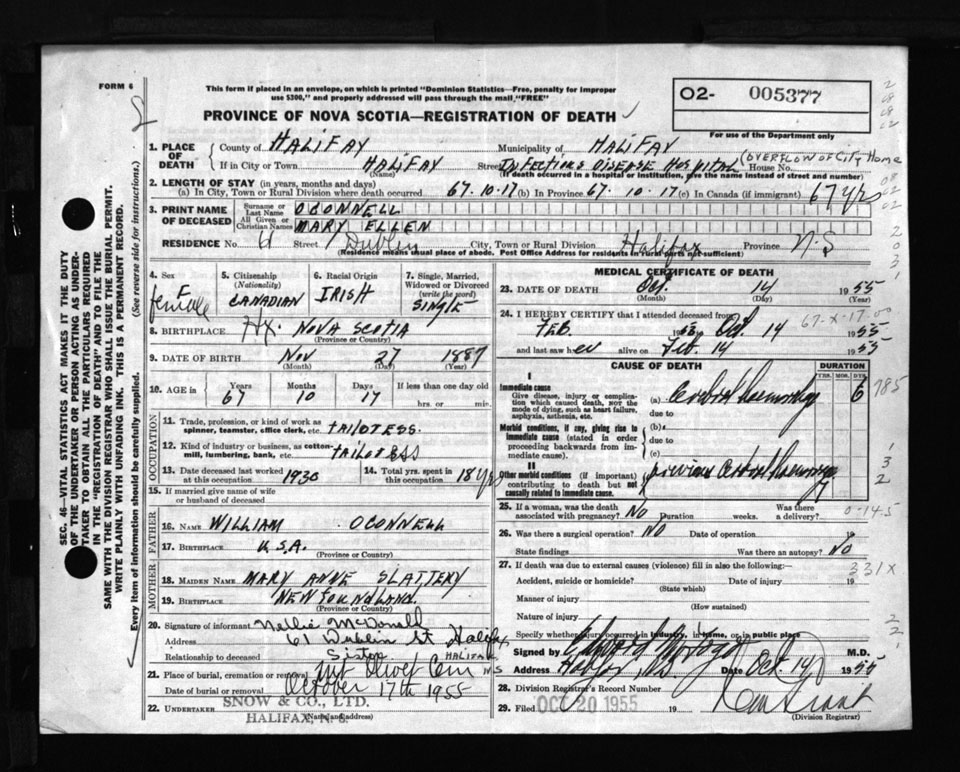 FORM 6
This form if placed in an envelope, on which is printed "Dominion Statistics—Free, penalty for improper
use $300," and properly addressed will pass through the mail, "FREE"
PROVINCE OF NOVA SCOTIA—REGISTRATION OF DEATH
O2- 005377
For use of the Department only
1. PLACE OF DEATH
County of HALIFAX Municipality of HALIFAX
If in City or Town HALIFAX (Name) Street INFECTIOUS DISEASE HOSPITAL House No. (OVERFLOW OF CITY HOME
(If death occurred in a hospital or institution, give the name instead of street and number)
2. LENGTH OF STAY (in years, months and days)
(a) In City, Town or Rural Division where death occurred 67.10.17 (b) In Province 67.10.17 (c) In Canada (if immigrant) 67 yrs
3. PRINT NAME OF DECEASED
Surname or Last Name OCONNELL
All Given or Christian Names MARY ELLEN
RESIDENCE No. 61 Street Dublin City, Town or Rural Division Halifax Province N-S
(Residence means usual place of abode. Post Office Address for residents in rural parts not sufficient)
4. Sex F female
5. Citizenship (Nationality) CANADIAN
6. Racial Origin IRISH
7. Single, Married, Widowed or Divorced (write the word) SINGLE
8. BIRTHPLACE Hx. NOVA SCOTIA
(Province or Country)
9. DATE OF BIRTH NOV 27 1887
(Month) (Day) (Year)
10. AGE in Years 67 Months 10 Days 17 If less than one day old hrs. or min.
OCCUPATION
11. Trade, profession, or kind of work as spinner, teamster, office clerk, etc. TAILORESS.
12. Kind of industry or business, as cotton-mill, lumbering, bank, etc. TAILORESS
13. Date deceased last worked at this occupation 1930
14. Total yrs. spent in this occupation 18 Yrs
15. If married give name of wife or husband of deceased
FATHER
16. NAME WILLIAM OCONNELL
17. BIRTHPLACE U.S.A.
(Province or Country)
MOTHER
18. MAIDEN NAME MARY ANNE SLATTERY
19. BIRTHPLACE NEWFOUNDLAND
(Province or Country)
20. Signature of informant Nellie McDonald
Address 61 Dublin St Halifax
Relationship to deceased Sister HALIFAX N.S
21. Place of burial, cremation or removal Mt Olivet Cem
Date of burial or removal October 17th 1955
22. UNDERTAKER SNOW & CO., LTD.
HALIFAX, N. S.
(Name and address)
MEDICAL CERTIFICATE OF DEATH
23. DATE OF DEATH Oct. 14 1955
(Month) (Day) (Year)
24. I HEREBY CERTIFY that I attended deceased from
FEB. Oct 14 1955
67-X-17-00
and last saw her alive on Feb. 14 1955
CAUSE OF DEATH DURATION
YRS. MOS. DYS.
I
Immediate cause
Give disease, injury or complication which caused death, not the mode of dying, such as heart failure, asphyxia, asthenia, etc.
(a) Cerebral haemorrhage 6 785
due to
Morbid conditions, if any, giving rise to immediate cause (stated in order proceeding backwards from immediate cause).
(b)
due to
(c)
II
Other morbid conditions (if important) contributing to death but not causally related to immediate cause.
previous cerebral haemorrhage
25. If a woman, was the death associated with pregnancy? NO Duration weeks. Was there a delivery? 0-14-5
26. Was there a surgical operation? NO Date of operation 19
State findings Was there an autopsy? NO
27. If death was due to external causes (violence) fill in also the following:— 331X
Accident, suicide or homicide? Date of injury 19
(State which)
Manner of injury
(How sustained)
Nature of injury
Specify whether injury occurred in industry, in home, or in public place
Signed by M.D.
Address Halifax, N.S. Date Oct 14 1955
28. Division Registrar's Record Number
29. Filed OCT 20 1955 19
(Division Registrar)
SEC. 46—VITAL STATISTICS ACT MAKES IT THE DUTY
OF THE UNDERTAKER OR PERSON ACTING AS UNDER-
TAKER TO OBTAIN ALL THE PARTICULARS REQUIRED
IN THE "REGISTRATION OF DEATH" AND TO FILE THE
SAME WITH THE DIVISION REGISTRAR WHO SHALL ISSUE THE BURIAL PERMIT.
WRITE PLAINLY WITH UNFADING INK. THIS IS A PERMANENT RECORD.
Every item of information should be carefully supplied. (See reverse side for instructions.)